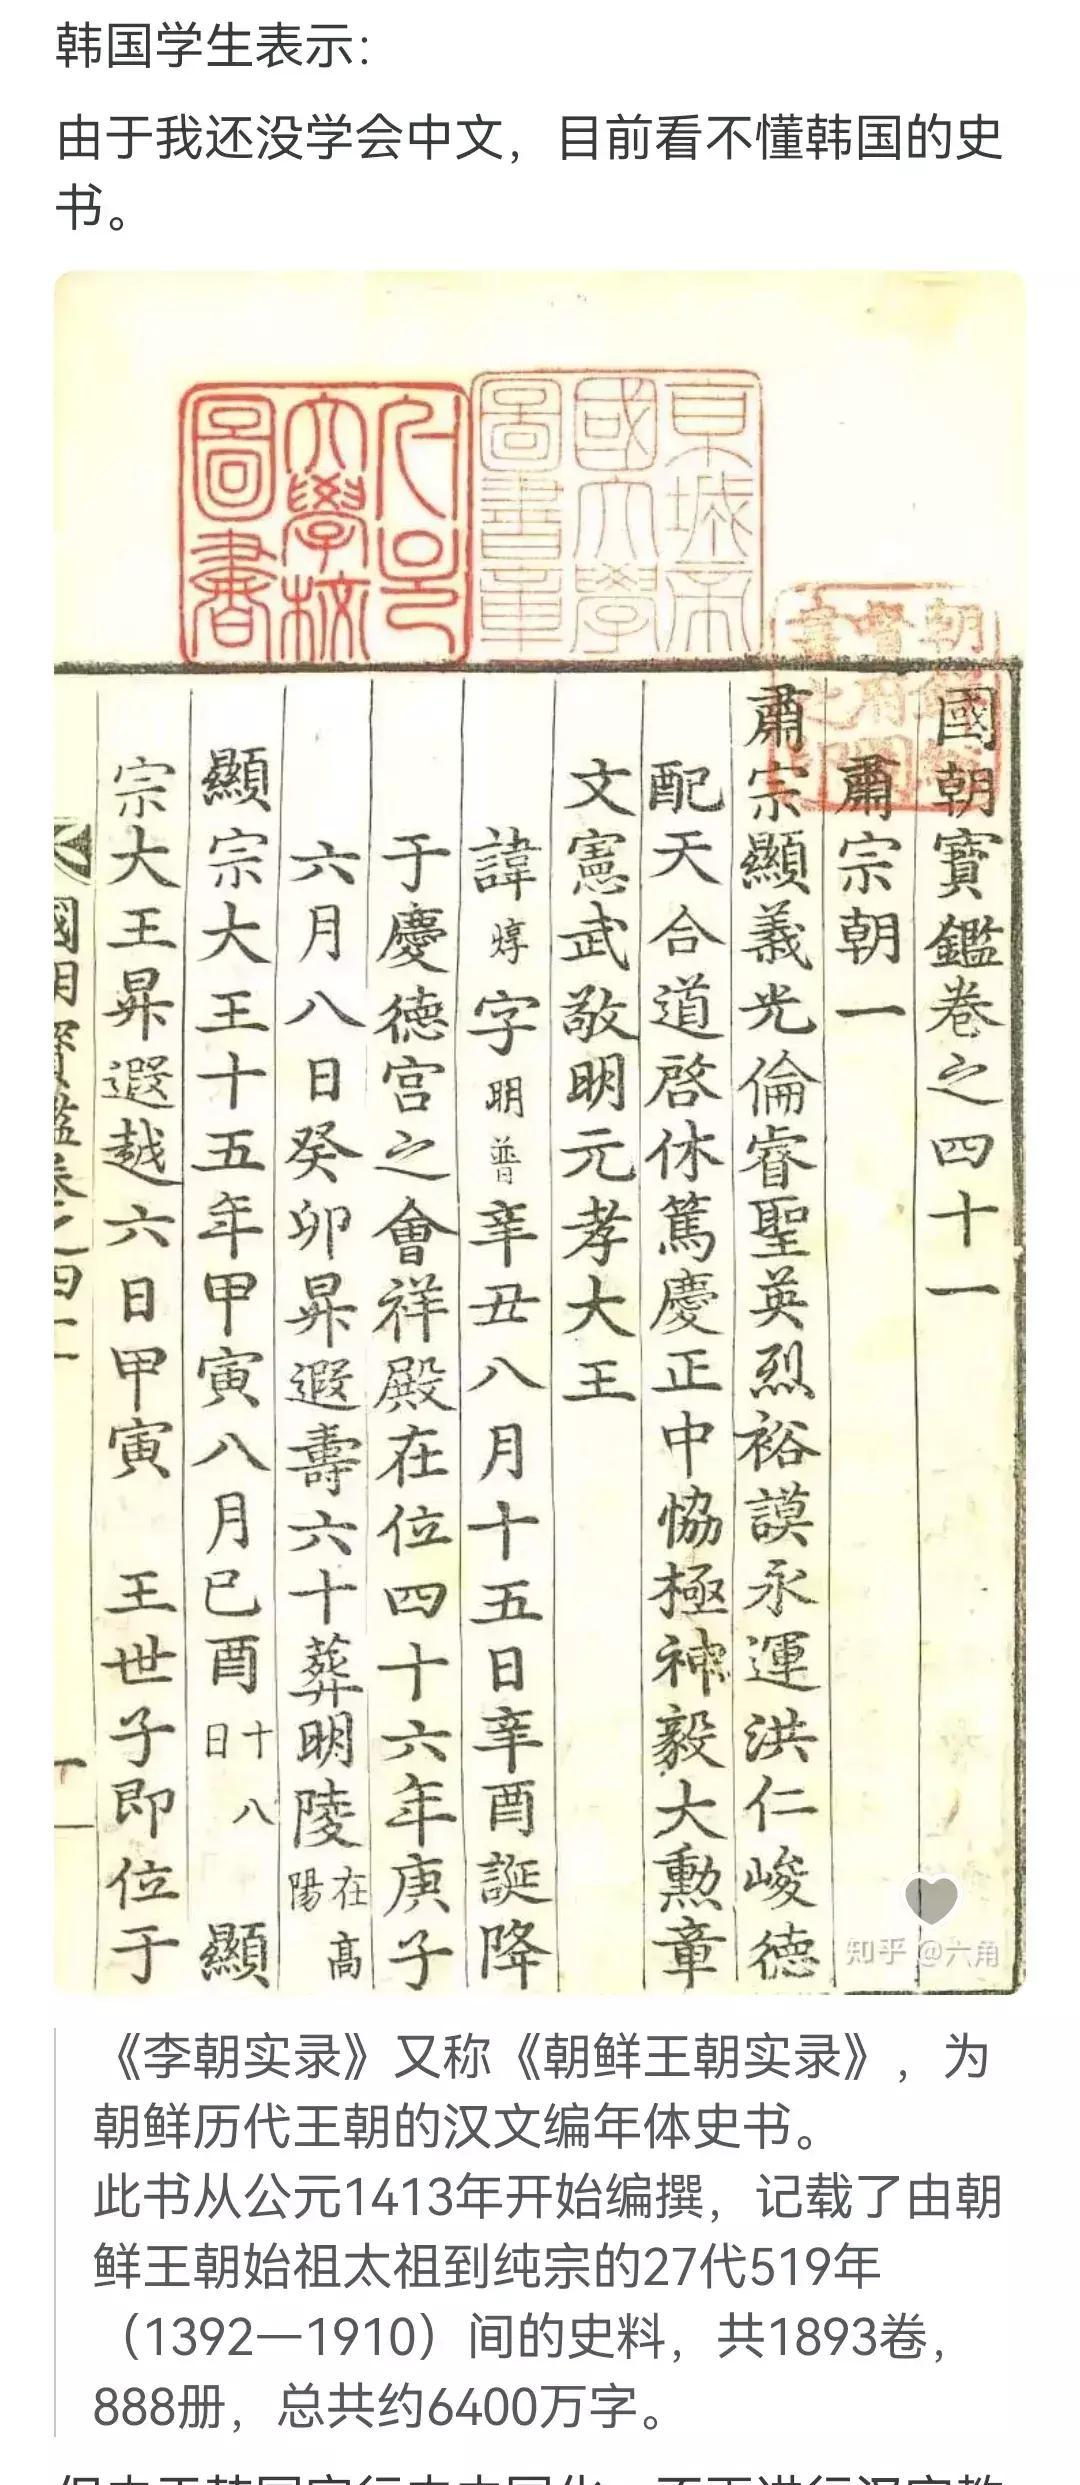 韩国学生表示：
由于我还没学会中文，目前看不懂韩国的史
书。
京城帝
國大學
圖書章
大學校
圖書
國朝寶鑑卷之四十一
肅宗朝一
肅宗顯義光倫睿聖英烈裕謨永運洪仁峻德
配天合道啓休篤慶正中恊極神毅大勳章
文憲武敬明元孝大王
諱焞字明普辛丑八月十五日辛酉誕降
于慶德宮之會祥殿在位四十六年庚子
六月八日癸卯昇遐壽六十葬明陵在高陽
顯宗大王十五年甲寅八月己酉十八日顯
宗大王昇遐越六日甲寅 王世子即位于
知乎 @六角
《李朝实录》又称《朝鲜王朝实录》，为
朝鲜历代王朝的汉文编年体史书。
此书从公元1413年开始编撰，记载了由朝
鲜王朝始祖太祖到纯宗的27代519年
（1392—1910）间的史料，共1893卷，
888册，总共约6400万字。